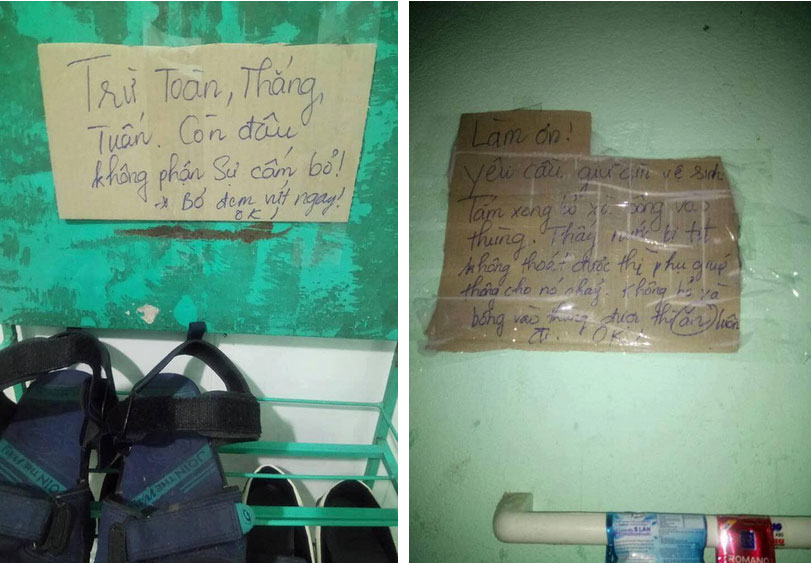 Trừ Toàn, Thắng,
Tuấn. Còn đâu
không phận sự cấm bỏ!
* Bỏ đem vứt ngay!
OK!
JOIN THE
JOIN THE
Làm ơn!
yêu cầu giữ gìn vệ sinh
Tắm xong bỏ xà bông vào
thùng. Thấy nước bị tịt
không thoát được thì phụ giúp
thông cho nó chảy. Không bỏ xà
bông vào thùng được thì (ăn) luôn
đi. OK!
ROMANO